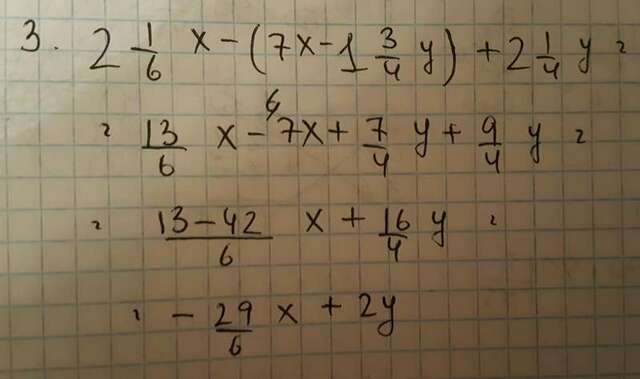 3. 2 1/6 x - (7x - 1 3/4 y) + 2 1/4 y =
= 13/6 x - ⁶7x + 7/4 y + 9/4 y =
= (13-42)/6 x + 16/4 y =
= - 29/6 x + 2y